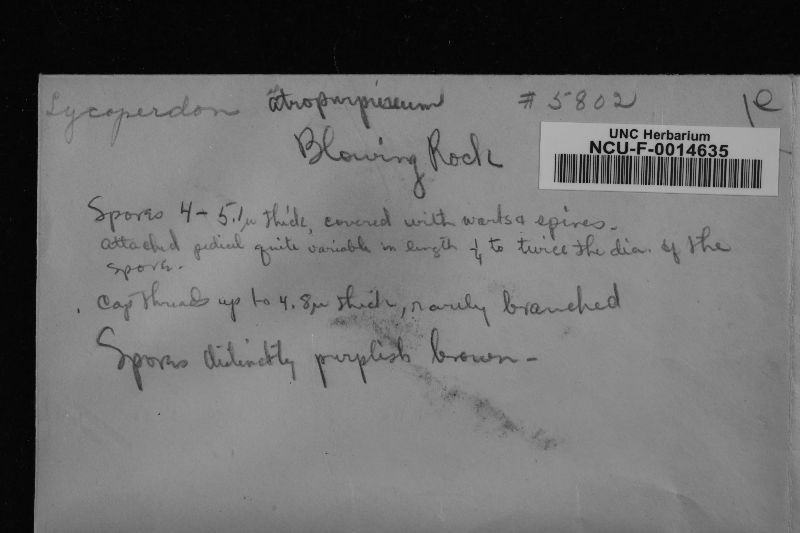 Lycoperdon atropurpureum # 5802
Blowing Rock
UNC Herbarium
NCU-F-0014635
Spores 4-5.1µ thick, covered with warts & spines.
attached pedicel quite variable in length ¼ to twice the dia. of the
spore.
Cap threads up to 4.8µ thick, rarely branched
Spores distinctly purplish brown -